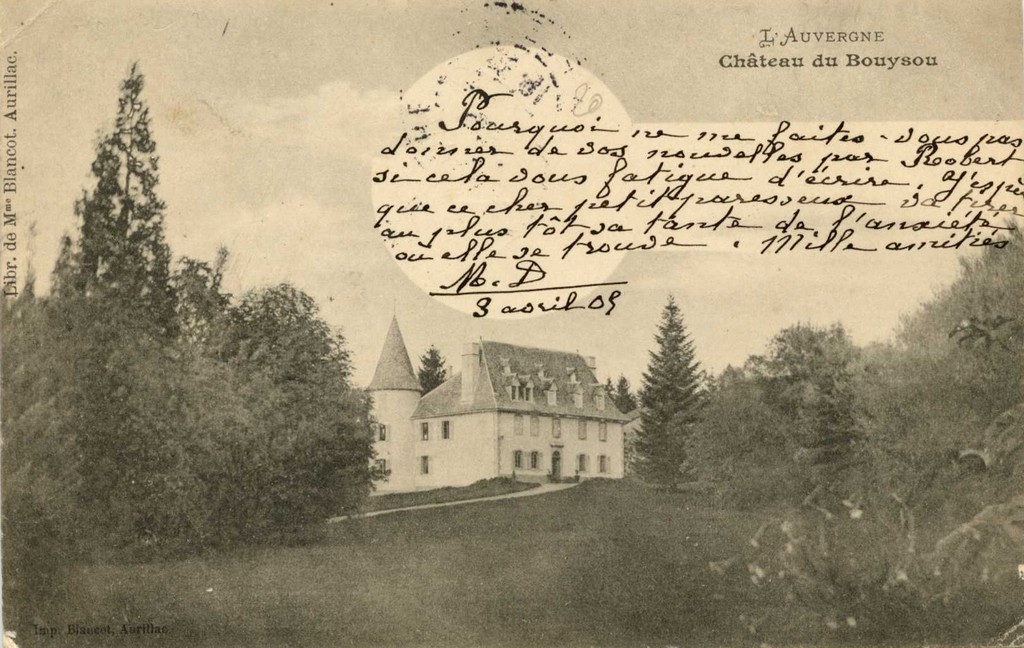 L'AUVERGNE
Château du Bouysou
Pourquoi ne me faites-vous pas
donner de vos nouvelles par Robert
si cela vous fatigue d'écrire. J'espè
que ce cher petit paresseux va tirer
au plus tôt sa tante de l'anxiété
où elle se trouve. Mille amitiés
M. D
3 avril 05
Libr. de Mme Blancot. Aurillac.
Imp. Blancot, Aurillac